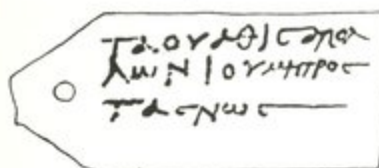 ταουαθιϲ απολ
λωνιου μητροϲ
ταϲνωϲ